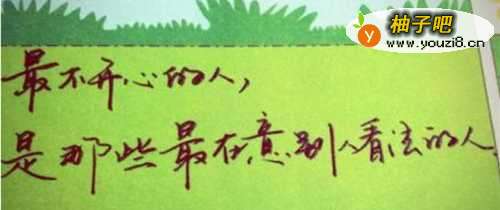 柚子吧
www.youzi8.cn
最不开心的人，
是那些最在意别人看法的人